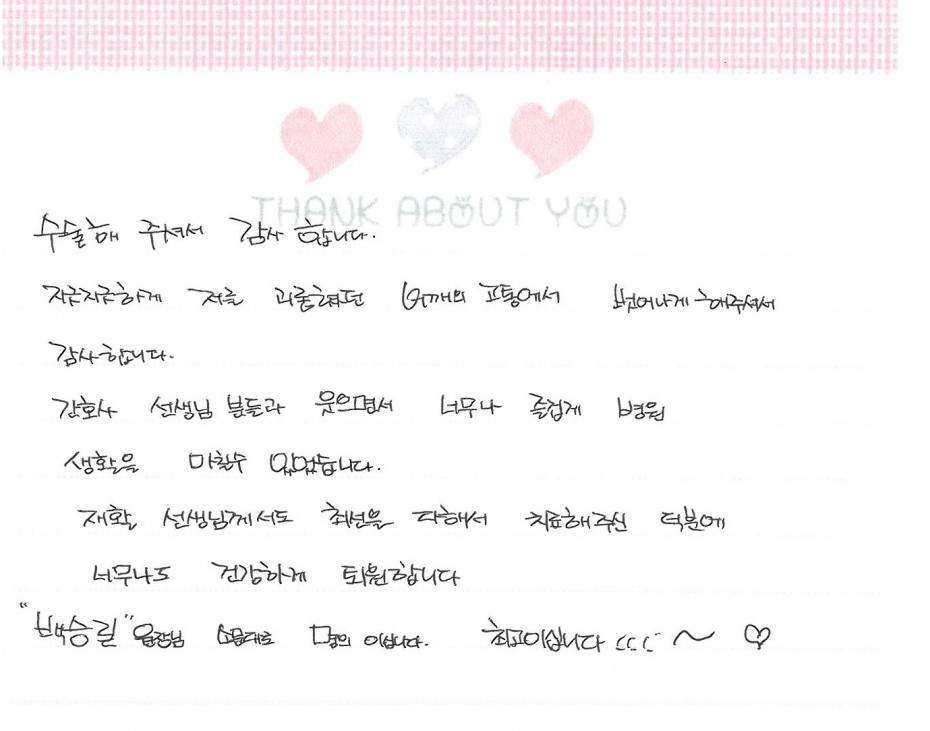 THANK ABOUT YOU
수술해 주셔서 감사 합니다.
지긋지긋하게 저를 괴롭혔던 어깨의 고통에서 벗어나게 해주셔서
감사합니다.
간호사 선생님 분들과 웃으면서 너무나 즐겁게 병원
생활을 마칠수 있었습니다.
재활 선생님께서도 최선을 다해서 치료해주신 덕분에
너무나도 건강하게 퇴원합니다
"박승길" 원장님 소문대로 명의 이십니다. 최고이십니다 ~ ♡